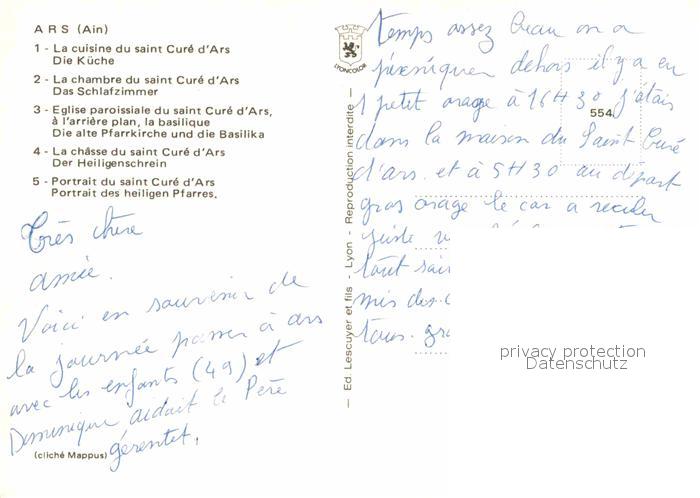 ARS (Ain)
1 - La cuisine du saint Curé d'Ars
Die Küche
2 - La chambre du saint Curé d'Ars
Das Schlafzimmer
3 - Eglise paroissiale du saint Curé d'Ars,
à l'arrière plan, la basilique
Die alte Pfarrkirche und die Basilika
4 - La châsse du saint Curé d'Ars
Der Heiligenschrein
5 - Portrait du saint Curé d'Ars
Portrait des heiligen Pfarres.
Très chère
amie.
Voici en souvenir de
la journée passer à ars
avec les enfants (49) et
Dominique aidait le Père
(cliché Mappus)
LYONCOLOR
— Ed. Lescuyer et fils - Lyon - Reproduction interdite —
temps assez beau on a
dehors il y a eu
1 petit orage à 16H30 j'étais
554
dans la maison du Saint Curé
d'ars. et à 5H30 au départ
gros orage le car a reculer
juste
tout
mis
privacy protection
Datenschutz